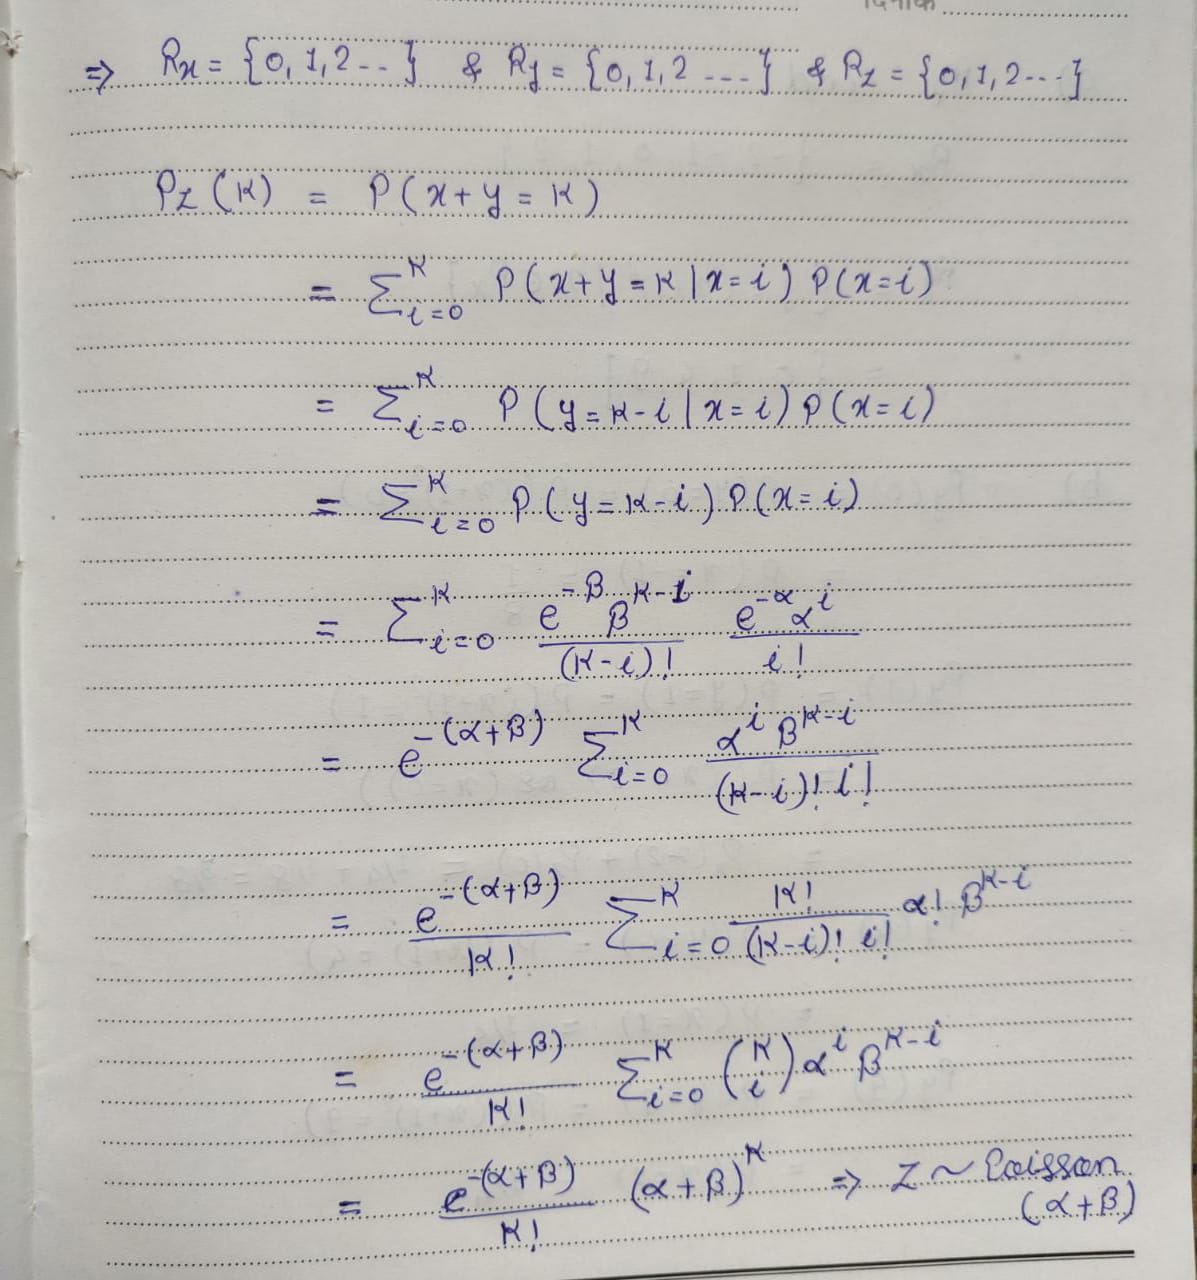 दिनांक
⇒ Rx = {0, 1, 2 -- } & Ry = {0, 1, 2 ---- } & Rz = {0, 1, 2 --- }
Pz (K) = P(x+y = K)
= Σ_{i=0}^{K} P(x+y = K | x=i) P(x=i)
= Σ_{i=0}^{K} P(y = K-i | x=i) P(x=i)
= Σ_{i=0}^{K} P(y = K-i) P(x=i)
= Σ_{i=0}^{K} \frac{e^{-β} β^{K-i}}{(K-i)!} \frac{e^{-α} α^{i}}{i!}
= e^{-(α+β)} Σ_{i=0}^{K} \frac{α^{i} β^{K-i}}{(K-i)! i!}
= \frac{e^{-(α+β)}}{K!} Σ_{i=0}^{K} \frac{K!}{(K-i)! i!} α! β^{K-i}
= \frac{e^{-(α+β)}}{K!} Σ_{i=0}^{K} \binom{K}{i} α^{i} β^{K-i}
= \frac{e^{-(α+β)}}{K!} (α+β)^{K} ⇒ Z ~ Poisson
(α+β)